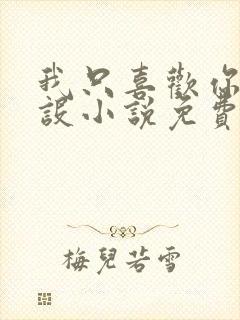 我只喜歡你
設小說免費
梅兒若雪